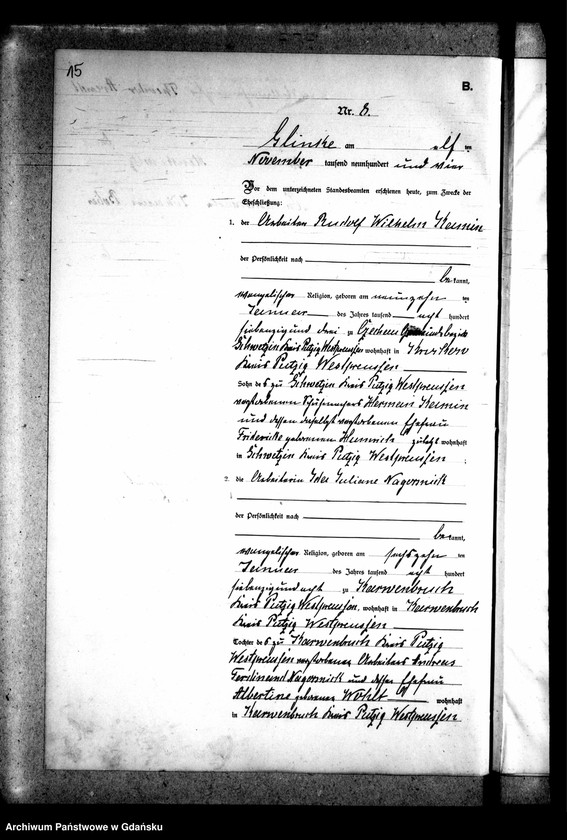 15
B.
Nr. 8.
Glinke am elf ten
November tausend neunhundert und vier
Vor dem unterzeichneten Standesbeamten erschienen heute, zum Zwecke der
Eheschließung:
1. der Arbeiter Rudolf Wilhelm Kamin
der Persönlichkeit nach
be kannt,
evangelischer Religion, geboren am neunzehn ten
Januar des Jahres tausend acht hundert
siebenzig und drei zu
Kreis Putzig Westpreussen wohnhaft in
Kreis Putzig Westpreussen
Sohn des zu Kreis Putzig Westpreussen
verstorbenen Hermann Kamin
und dessen daselbst verstorbenen Ehefrau
Friderike geborenen Heinrich zuletzt wohnhaft
in Kreis Putzig Westpreussen
2. die Arbeiterin Ida Juliane Nagornick
der Persönlichkeit nach
be kannt,
evangelischer Religion, geboren am sechszehn ten
Januar des Jahres tausend acht hundert
siebenzig und acht zu Karwenbruch
Kreis Putzig Westpreussen, wohnhaft in Karwenbruch
Kreis Putzig Westpreussen
Tochter des zu Karwenbruch Kreis Putzig
Westpreussen verstorbenen Arbeiters Andreas
Ferdinand Nagornick und dessen Ehefrau
Albertine geborenen Wohlt wohnhaft
in Karwenbruch Kreis Putzig Westpreussen
Archiwum Państwowe w Gdańsku